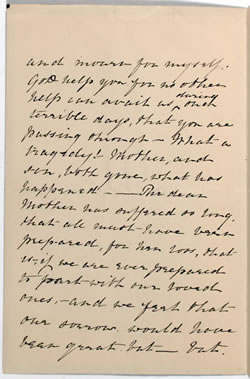 and mourn for myself.
God help you for no other
help can avail us during such
terrible days, that you are
passing through — What a
tragedy! Mother, and
son, both gone, what has
happened — — The dear
Mother has suffered so long,
that all must have been
prepared, for her loss, that
is, if we are ever prepared
to part with our loved
ones, — and we feel that
our sorrow, would have
been great but — but.